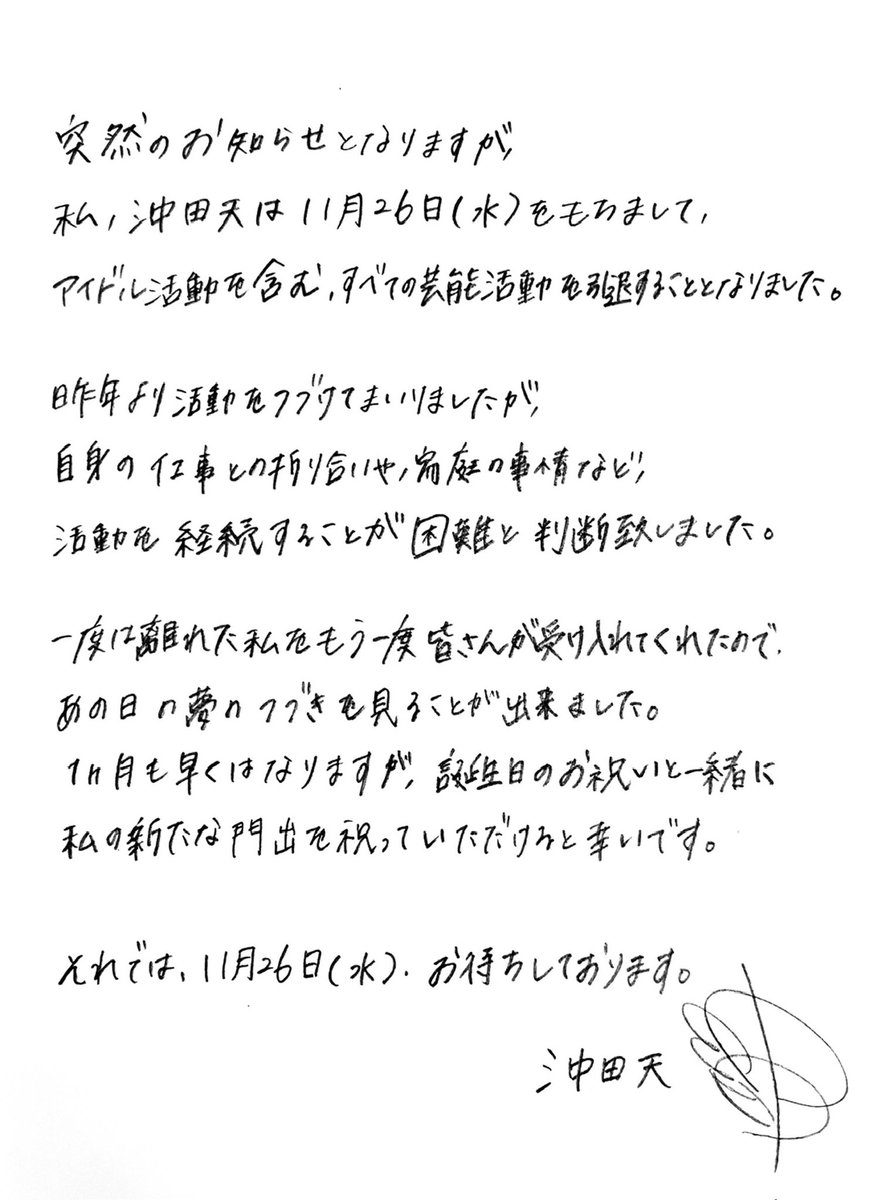 突然のお知らせとなりますが、
私、沖田天は11月26日(水)をもちまして、
アイドル活動を含む、すべての芸能活動を引退することとなりました。
昨年より活動をつづけてまいりましたが、
自身の仕事との折り合いや、家庭の事情など、
活動を経続することが困難と判断致しました。
一度は離れた私をもう一度皆さんが受け入れてくれたので、
あの日の夢のつづきを見ることが出来ました。
1ヶ月も早くはなりますが、誕生日のお祝いと一緒に
私の新たな門出を祝っていただけると幸いです。
それでは、11月26日(水)、お待ちしております。
沖田天